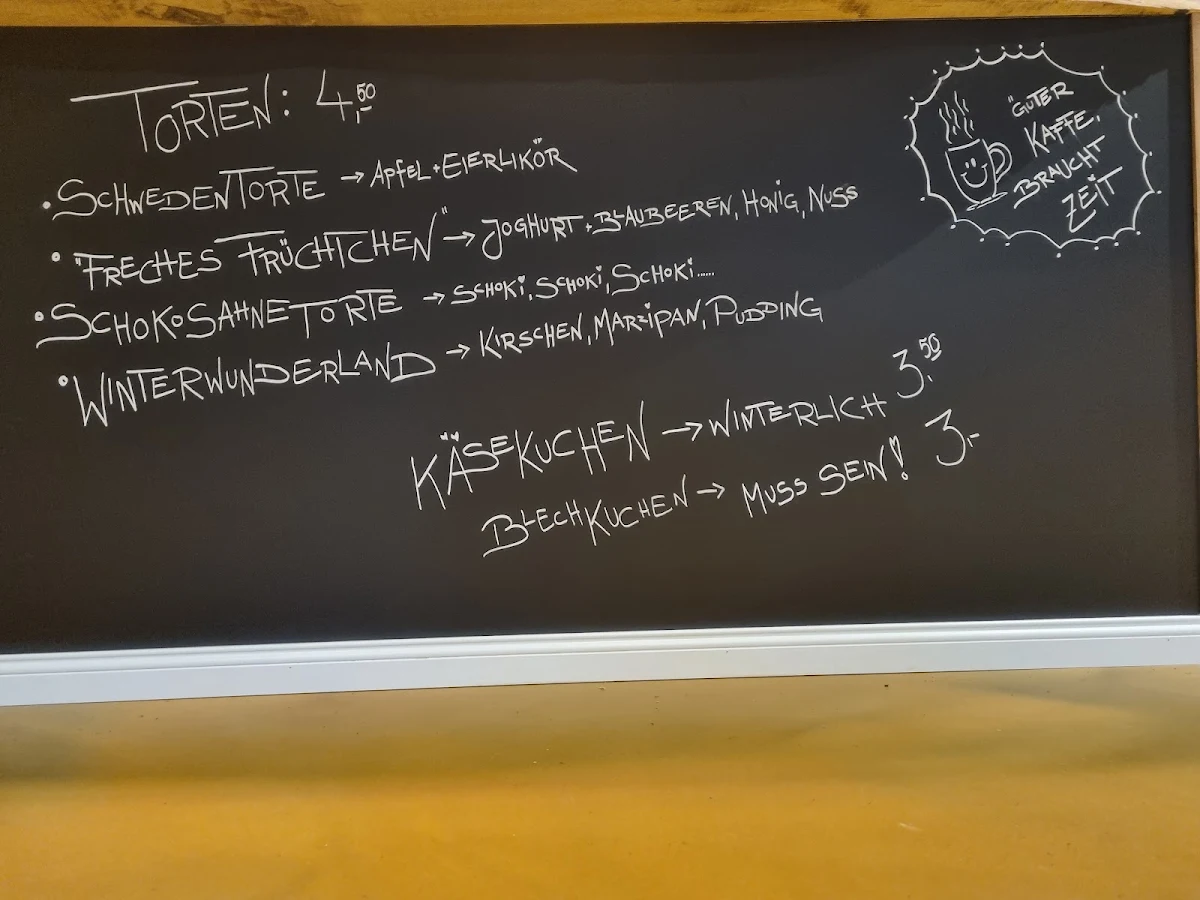 TORTEN: 4,50
• SCHWEDENTORTE → APFEL + EIERLIKÖR
• "FRECHES FRÜCHTCHEN" → JOGHURT + BLAUBEEREN, HONIG, NUSS
• SCHOKOSAHNETORTE → SCHOKI, SCHOKI, SCHOKI......
• WINTERWUNDERLAND → KIRSCHEN, MARZIPAN, PUDDING
KÄSEKUCHEN → WINTERLICH 3.50
BLECHKUCHEN → MUSS SEIN! 3.-
"GUTER
KAFFE,
BRAUCHT
ZEIT